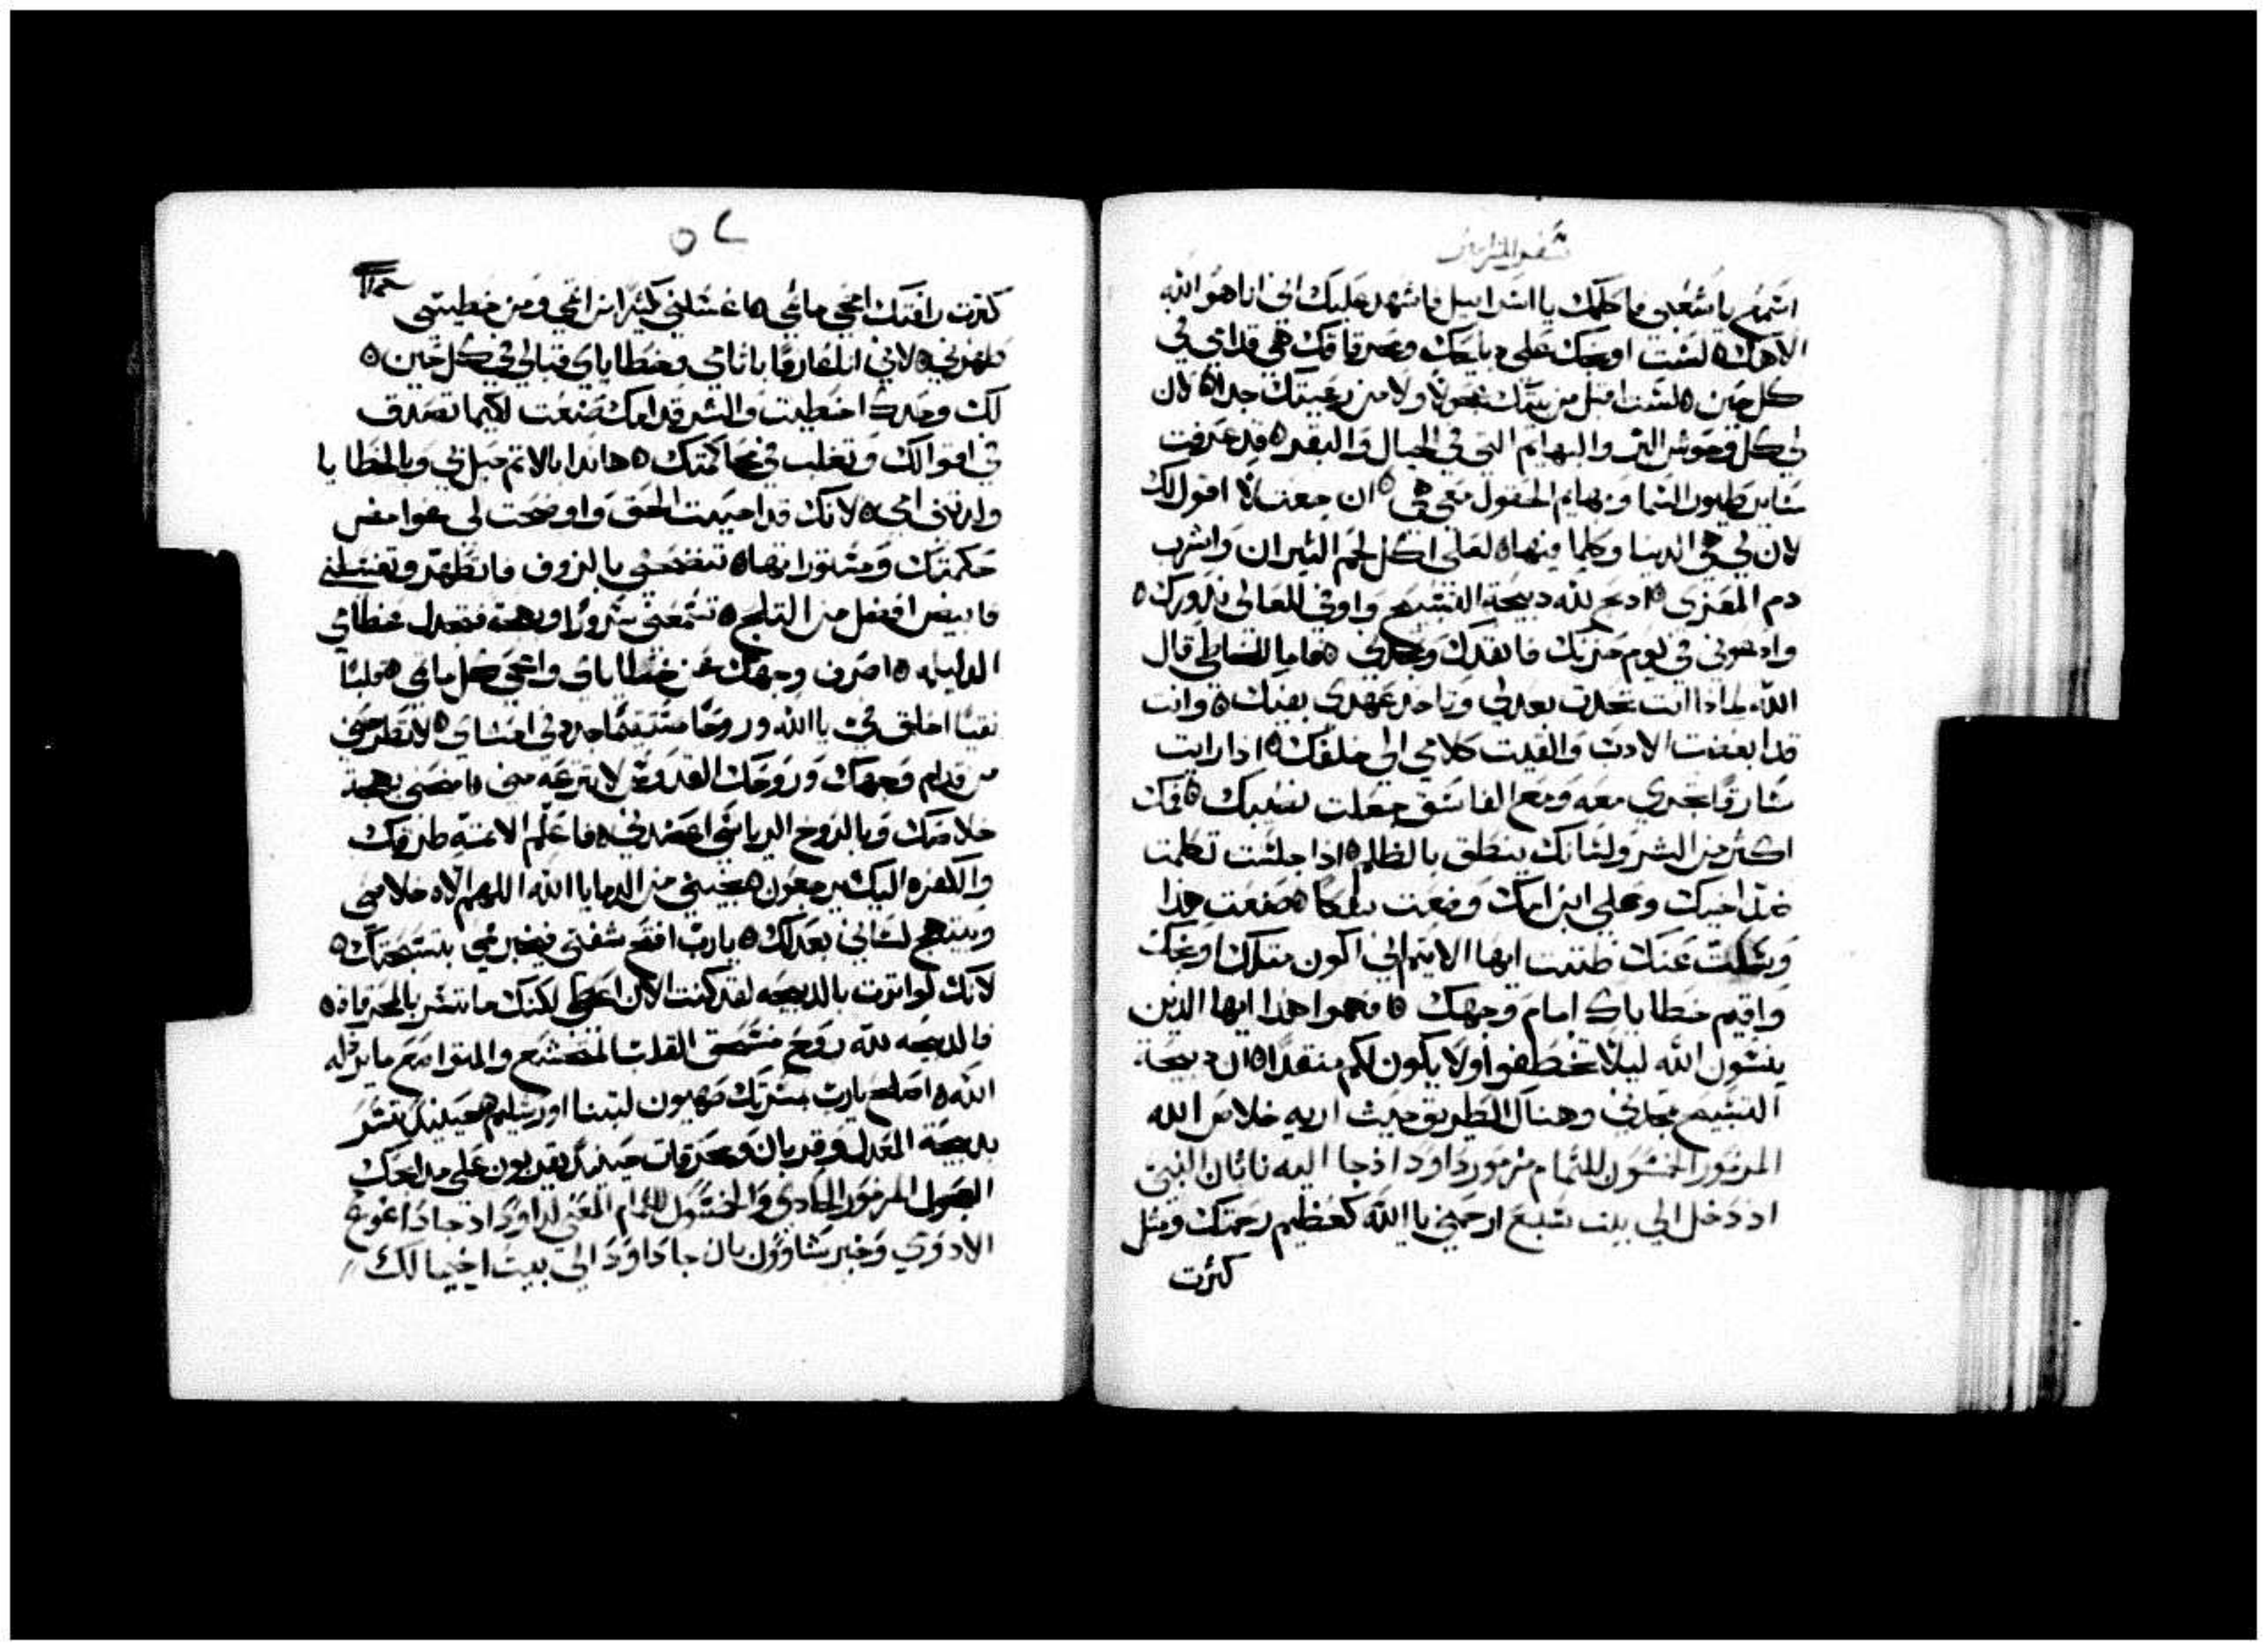 سفر المزامير
اسمع يا شعبي فاكلمك يا اسراييل فاشهد عليك اني انا هو الله
الاهك ٥ لست اوبخك علي دبايحك ومحرقاتك هي قدامي في
كل حين ٥ لست اقبل من بيتك عجولا ولا من رعيتك جدا ٥ لان
لي كل وحوش البر والبهايم التي في الجبال والبقر ٥ قد عرفت
ساير طيور السما وبهايم الحقول معي هي ٥ ان جعت لا اقول لك
لان لي هي الدنيا وكلما فيها ٥ لعلي اكل لحم التيران واشرب
دم المعزي ٥ ادبح لله دبيحة التسبيح واوفي للعالي ندورك ٥
وادعوني في يوم حزنك فانقدك وتمجدني ٥ فاما للخاطي قال
الله لمادا انت تحدت بعدلي وتاخد عهدي بفيك ٥ وانت
قد ابغضت الادب والقيت كلامي الي خلفك ٥ ادا رايت
سارقا تجري معه ومع الفاسق جعلت نصيبك ٥ فمك
اكثر من الشر ولسانك ينطق بالظلم ٥ اذا جلست تكلمت
علي اخيك وعلي ابن امك وضعت شكا ٥ صنعت هدا
وسكت عنك ظننت ايها الاتيم اني اكون متلك اوبخك
واقيم خطاياك امام وجهك ٥ افهموا هدا ايها الذين
ينسون الله ليلا تخطفوا ولا يكون لكم منقدا ٥ ان دبيحة
التسبيح تمجدني وهناك الطريق حيث اريه خلاص الله
المزمور الخمسون للتمام مزمور داود اذ جا اليه ناثان النبي
اد دخل الي بيت شبع ارحمني يا الله كعظيم رحمتك ومثل
كثرت
٥٢
كثرت رافتك امحي ماثمي ٥ اغسلني كثيرا من اثمي ومن خطيتي
طهرني ٥ لاني انا عارفا باثامي وخطاياي قبالي في كل حين ٥
لك وحدك اخطيت والشر قدامك صنعت لكيما تصدق
في اقوالك وتغلب في محاكمتك ٥ هاندا بالاتم حبل بي وبالخطايا
ولدتني امي ٥ لانك قد احببت الحق واوضحت لي غوامض
حكمتك ومستوراتها ٥ تنضحني بالزوف فاتطهر وتغسلني
فابيض افضل من التلج ٥ تسمعني سرورا وبهجة فتجدل عظامي
الدليله ٥ اصرف وجهك عن خطاياي وامحي كل ماثمي ٥ قلبا
نقيا اخلق في يا الله وروحا مستقيما جدد في احشاي ٥ لا تطرحني
من قدام وجهك وروحك القدوس لا تنزعه مني ٥ امنحني بهجة
خلاصك وبالروح الرياسي اعضدني ٥ فاعلم الاتمة طرقك
والكفره اليك يرجعون ٥ نجيني من الدما يا الله اللهم الاه خلاصي
ويبتهج لساني بعدلك ٥ يارب افتح شفتي فيخبر فمي بتسبحتك ٥
لانك لو اترت بالدبيحه لقد كنت الان اعطي لكنك ما تسر بالمحرقات ٥
فالدبيحه لله روح منسحق القلب المتخشع والمتواضع ما يرذله
الله ٥ اصلح يارب بمسرتك صهيون لتبنا اورشليم ٥ حينيد تسر
بدبيحة العدل وقربان ومحرقات حينيد يقربون علي مدابحك
العجول المزمور الحادي والخمسون للتمام المعني لداود اد جا داغوغ
الادومي وخبر شاوول بان جا داود الي بيت اخيمالك